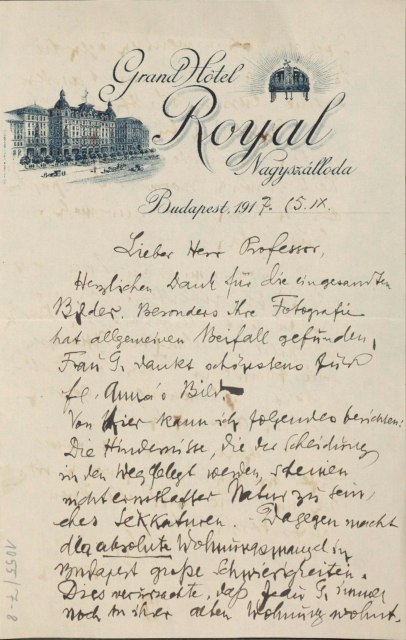 Grand Hôtel
Royal
Nagyszálloda
Budapest, 1917. 15. IX.
Lieber Herr Professor,
Herzlichen Dank für die eingesandten
Bilder. Besonders Ihre Fotografie
hat allgemeinen Beifall gefunden,
Frau G. dankt schönstens für
frl. Anna's Bild.
Von hier kann ich folgendes berichten:
Die Hindernisse, die der Scheidung
in den Weg gelegt werden, scheinen
nicht ernsthafter Natur zu sein,
eher Sekkaturen. Dagegen macht
der absolute Wohnungsmangel in
Budapest große Schwierigkeiten.
Dies verursachte, daß Frau G. immer
noch in ihrer alten Wohnung wohnt.
1055/7-8